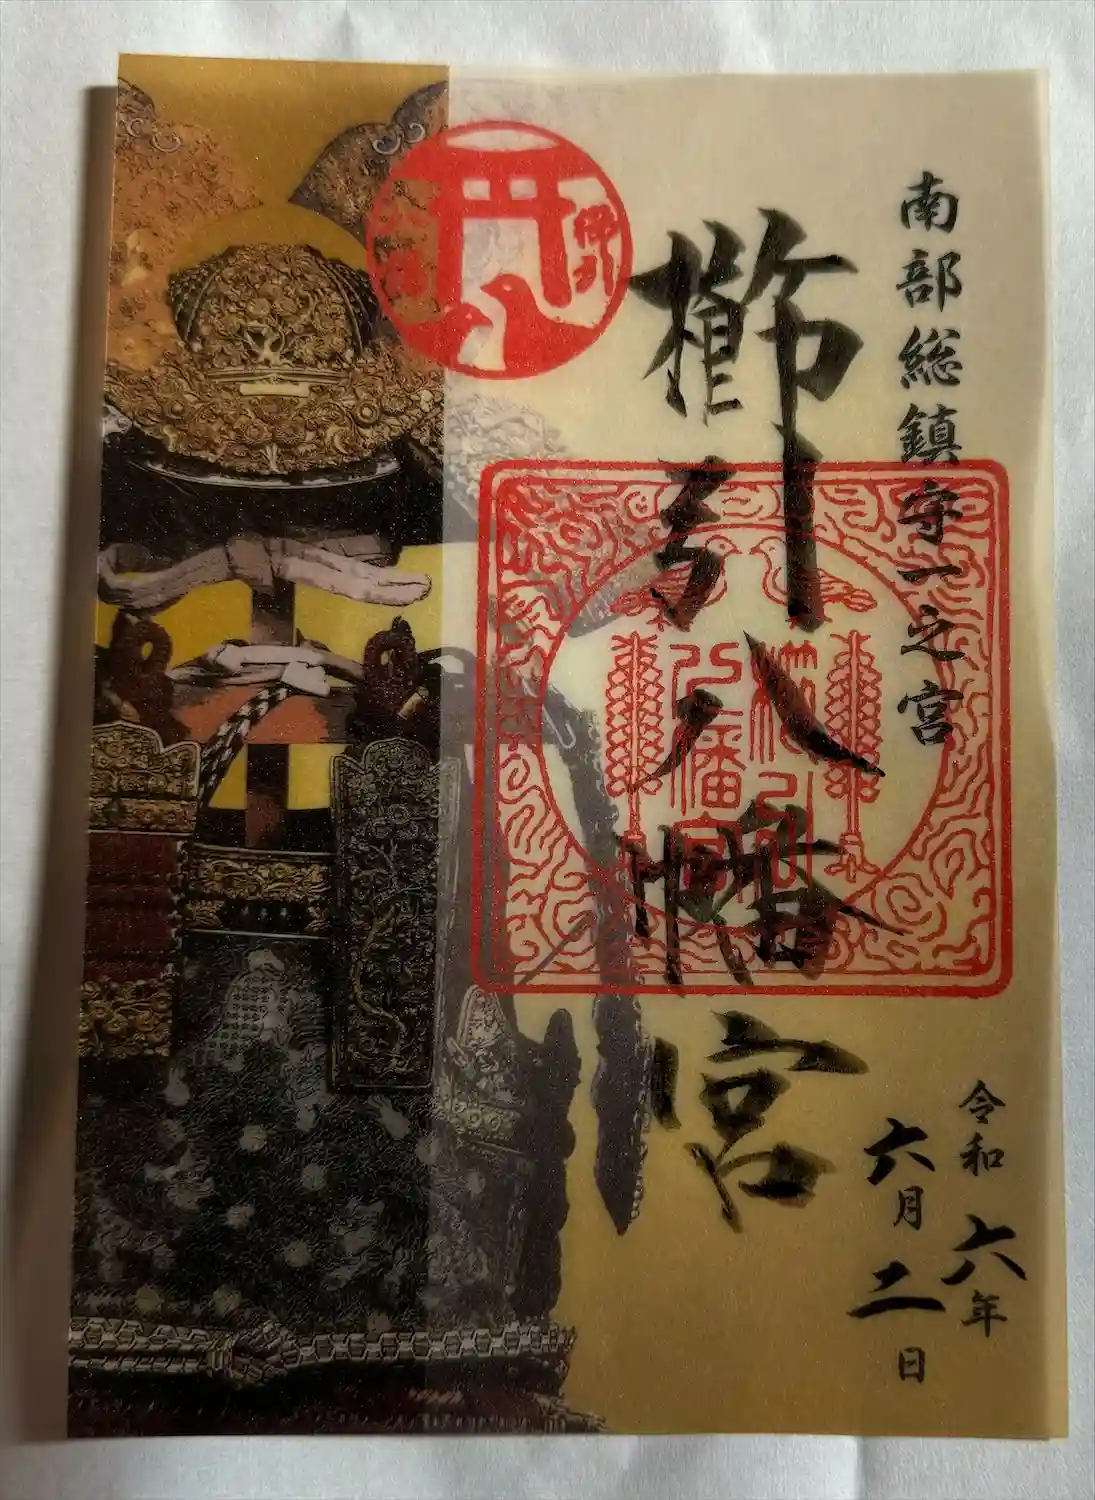 南部総鎮守一之宮
櫛引八幡宮
令和六年
六月二日
櫛引
八幡宮